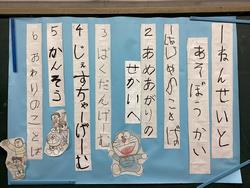 一ねんせいと
あそぼうかい
1 はじめのことば
2 あめあがりの
せかいへ
3 ばくだんげーむ
4 じぇすちゃーげーむ
5 かんそう
6 おわりのことば